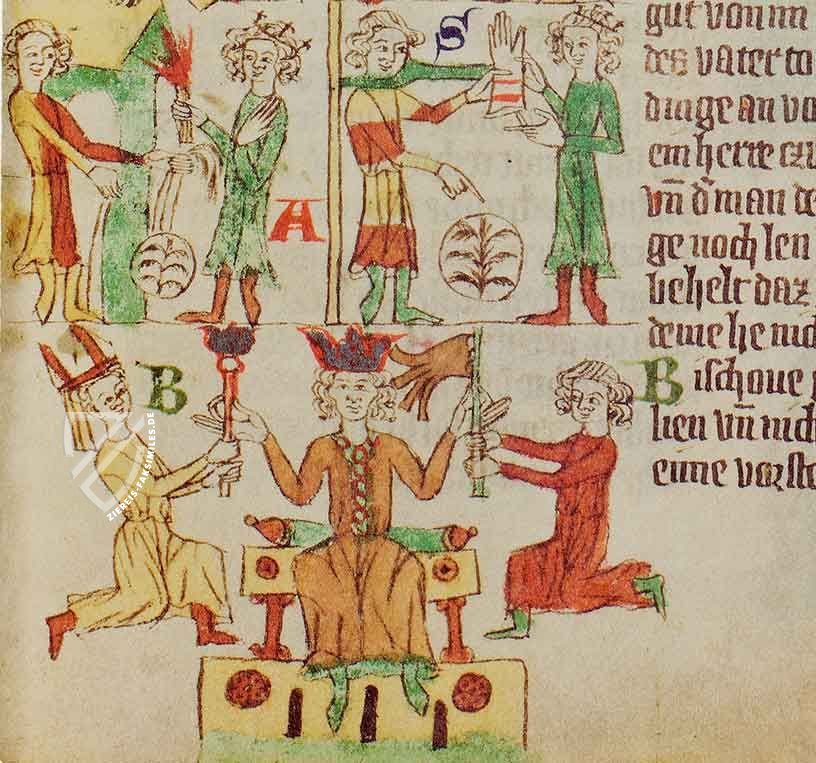 S
A
B
gut von im
des vater to
dinge an vo
em herre czu
vn̄ d̓ man de
ge noch len
behelt daz
deme he nich
B ischoue
lien vn̄ nich
eune vorste
ZIEREIS-FAKSIMILES.DE